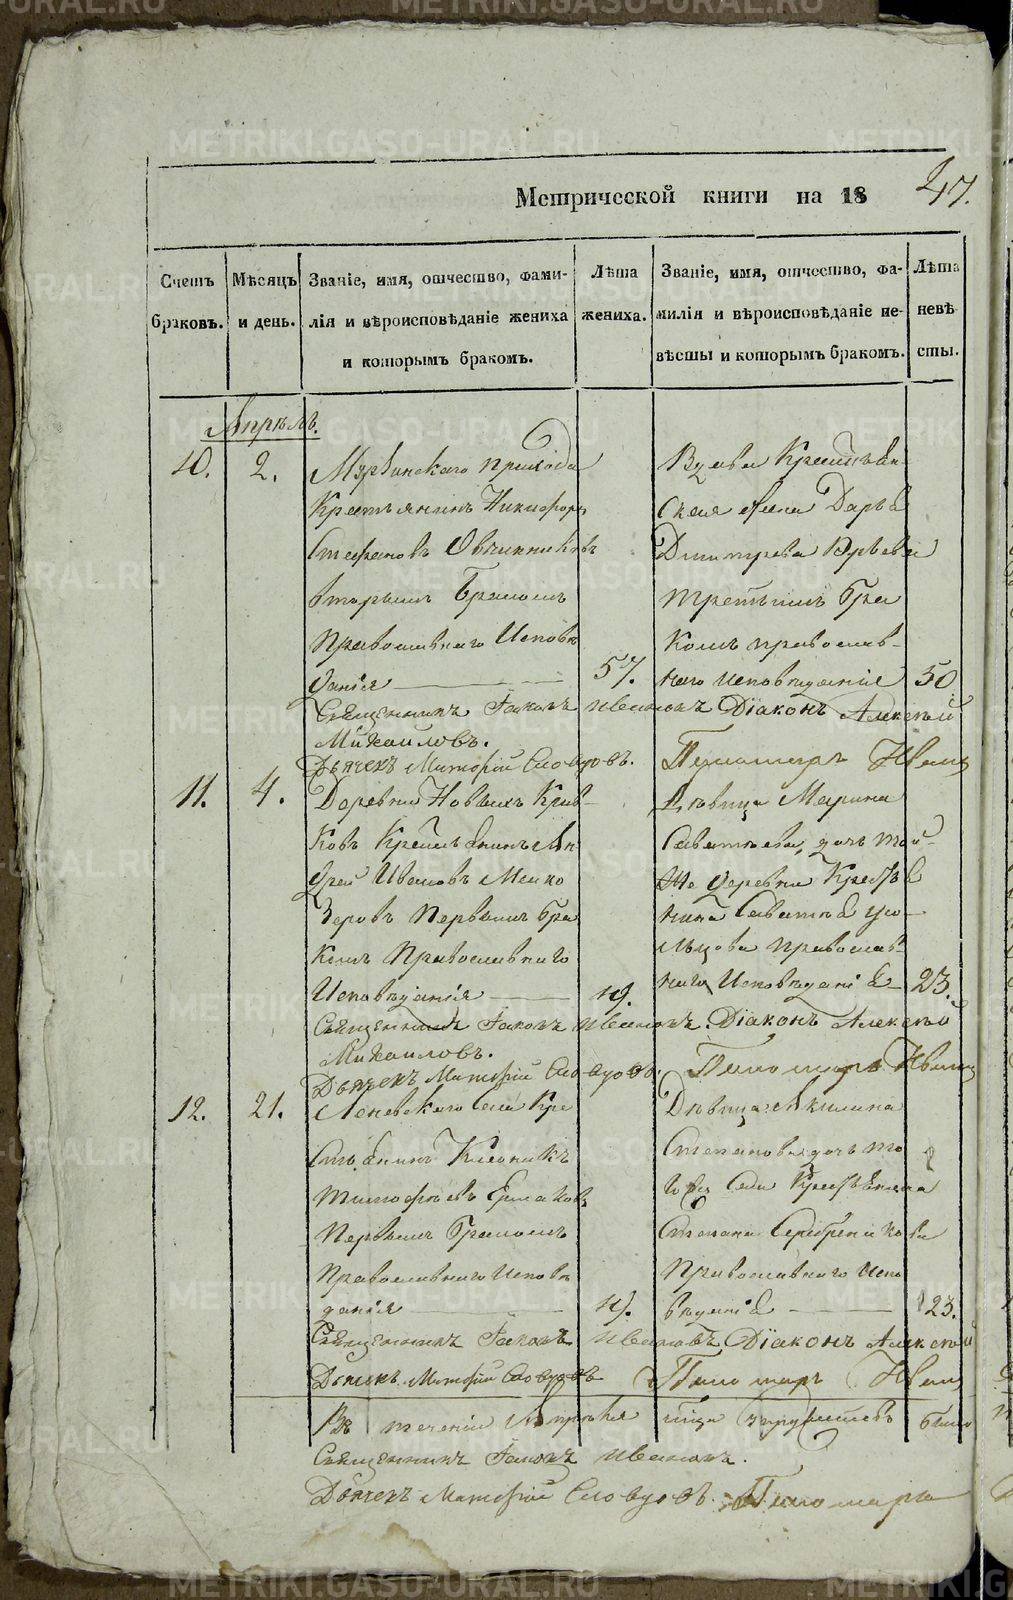 Метрической книги на 18 47.
Счетъ браковъ.
Мѣсяцъ и день.
Званіе, имя, отчество, фамилія и вѣроисповѣданіе жениха и которымъ бракомъ.
Лѣта жениха.
Званіе, имя, отчество, фамилія и вѣроисповѣданіе невѣсты и которымъ бракомъ.
Лѣта невѣсты.
Апрѣль.
10. 2.
прихода
Крестьянинъ Никифоръ
Стефановъ Овчинниковъ
вторымъ бракомъ
Православнаго Исповѣ
данія 57.
Вдова Крестьян-
ская жена Дарья
Димитрева
третьимъ бра
комъ православ-
наго исповѣданія 50.
Священникъ Іаковъ Ивановъ Діаконъ Алексѣй
Михайловъ.
Дьячекъ Матфій Словцовъ. Пономарь
11. 4.
Деревни Новыхъ Крив-
ковъ Крестьянинъ Ан
дрей Ивановъ Мелко
зеровъ Первымъ бра
комъ Православнаго
Исповѣданія 19.
Дѣвица Марина
Саватѣева, дочь той
же деревни Крестья
нина Саватѣя
Православ-
наго Исповѣданія 23.
Священникъ Іаковъ Ивановъ. Діаконъ Алексѣй
Михайловъ.
Дьячекъ Матфій Словцовъ. Пономарь
12. 21.
Леневскаго Села Кре
стьянинъ
Тимофѣевъ Ермаковъ
Первымъ бракомъ
Православнаго Исповѣ
данія 19.
Дѣвица Акилина
Степанова дочь то
го же Села Крестьянина
Степана Серебреникова
Православнаго Испо
вѣданія 23.
Священникъ Іаковъ Ивановъ Діаконъ Алексѣй
Дьячекъ Матфій Словцовъ Пономарь
Въ теченіи Апрѣля было
Священникъ Іаковъ Ивановъ.
Дьячекъ Матфій Словцовъ. Пономарь
METRIKI.GASO-URAL.RU